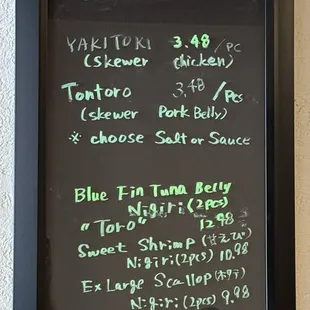 YAKITORI 3.48 /PC
(skewer chicken)
Tontoro 3.48 /Pcs
(skewer Pork Belly)
※ choose Salt or Sauce
Blue Fin Tuna Belly
Nigiri (2pcs)
"Toro" 12.98
Sweet Shrimp (甘えび)
Nigiri (2pcs) 10.98
Ex Large Scallop (ホタテ)
Nigiri (2pcs) 9.98